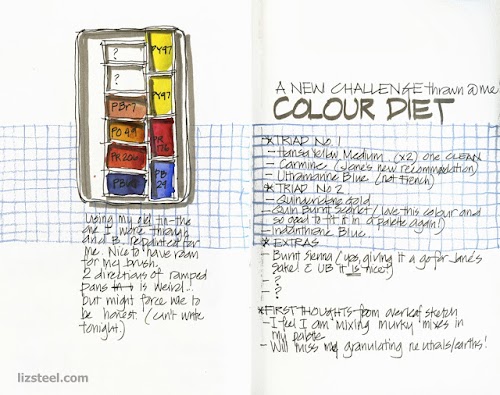 ?
PY97
?
PY97
PBr7
PO 49
PR 176
PR 206
PB 60
PB 29
Using my old tin-the
one I wore through
and B. repainted for
me. Nice to have room
for my brush.
2 directions of ramped
pans is weird!!
but might force me to
be honest. (can't write
tonight.)
lizsteel.com
A NEW CHALLENGE thrown @ me
COLOUR DIET
* TRIAD No. 1
- Hansa Yellow Medium (x2) one CLEAN
- Carmine (Jane's new recommendation)
- Ultramarine Blue (not French)
* TRIAD No 2
- Quinacridone Gold
- Quin Burnt Scarlet / love this colour and
so good to fit it in a palette again!)
- Indanthrone Blue
* EXTRAS
- Burnt Sienna (yes, giving it a go for Jane's
sake! & UB it is nice!)
- ?
- ?
* FIRST THOUGHTS from overleaf sketch
- I feel I am mixing murky mixes in
my palette
- Will miss my granulating neutrals/earths!